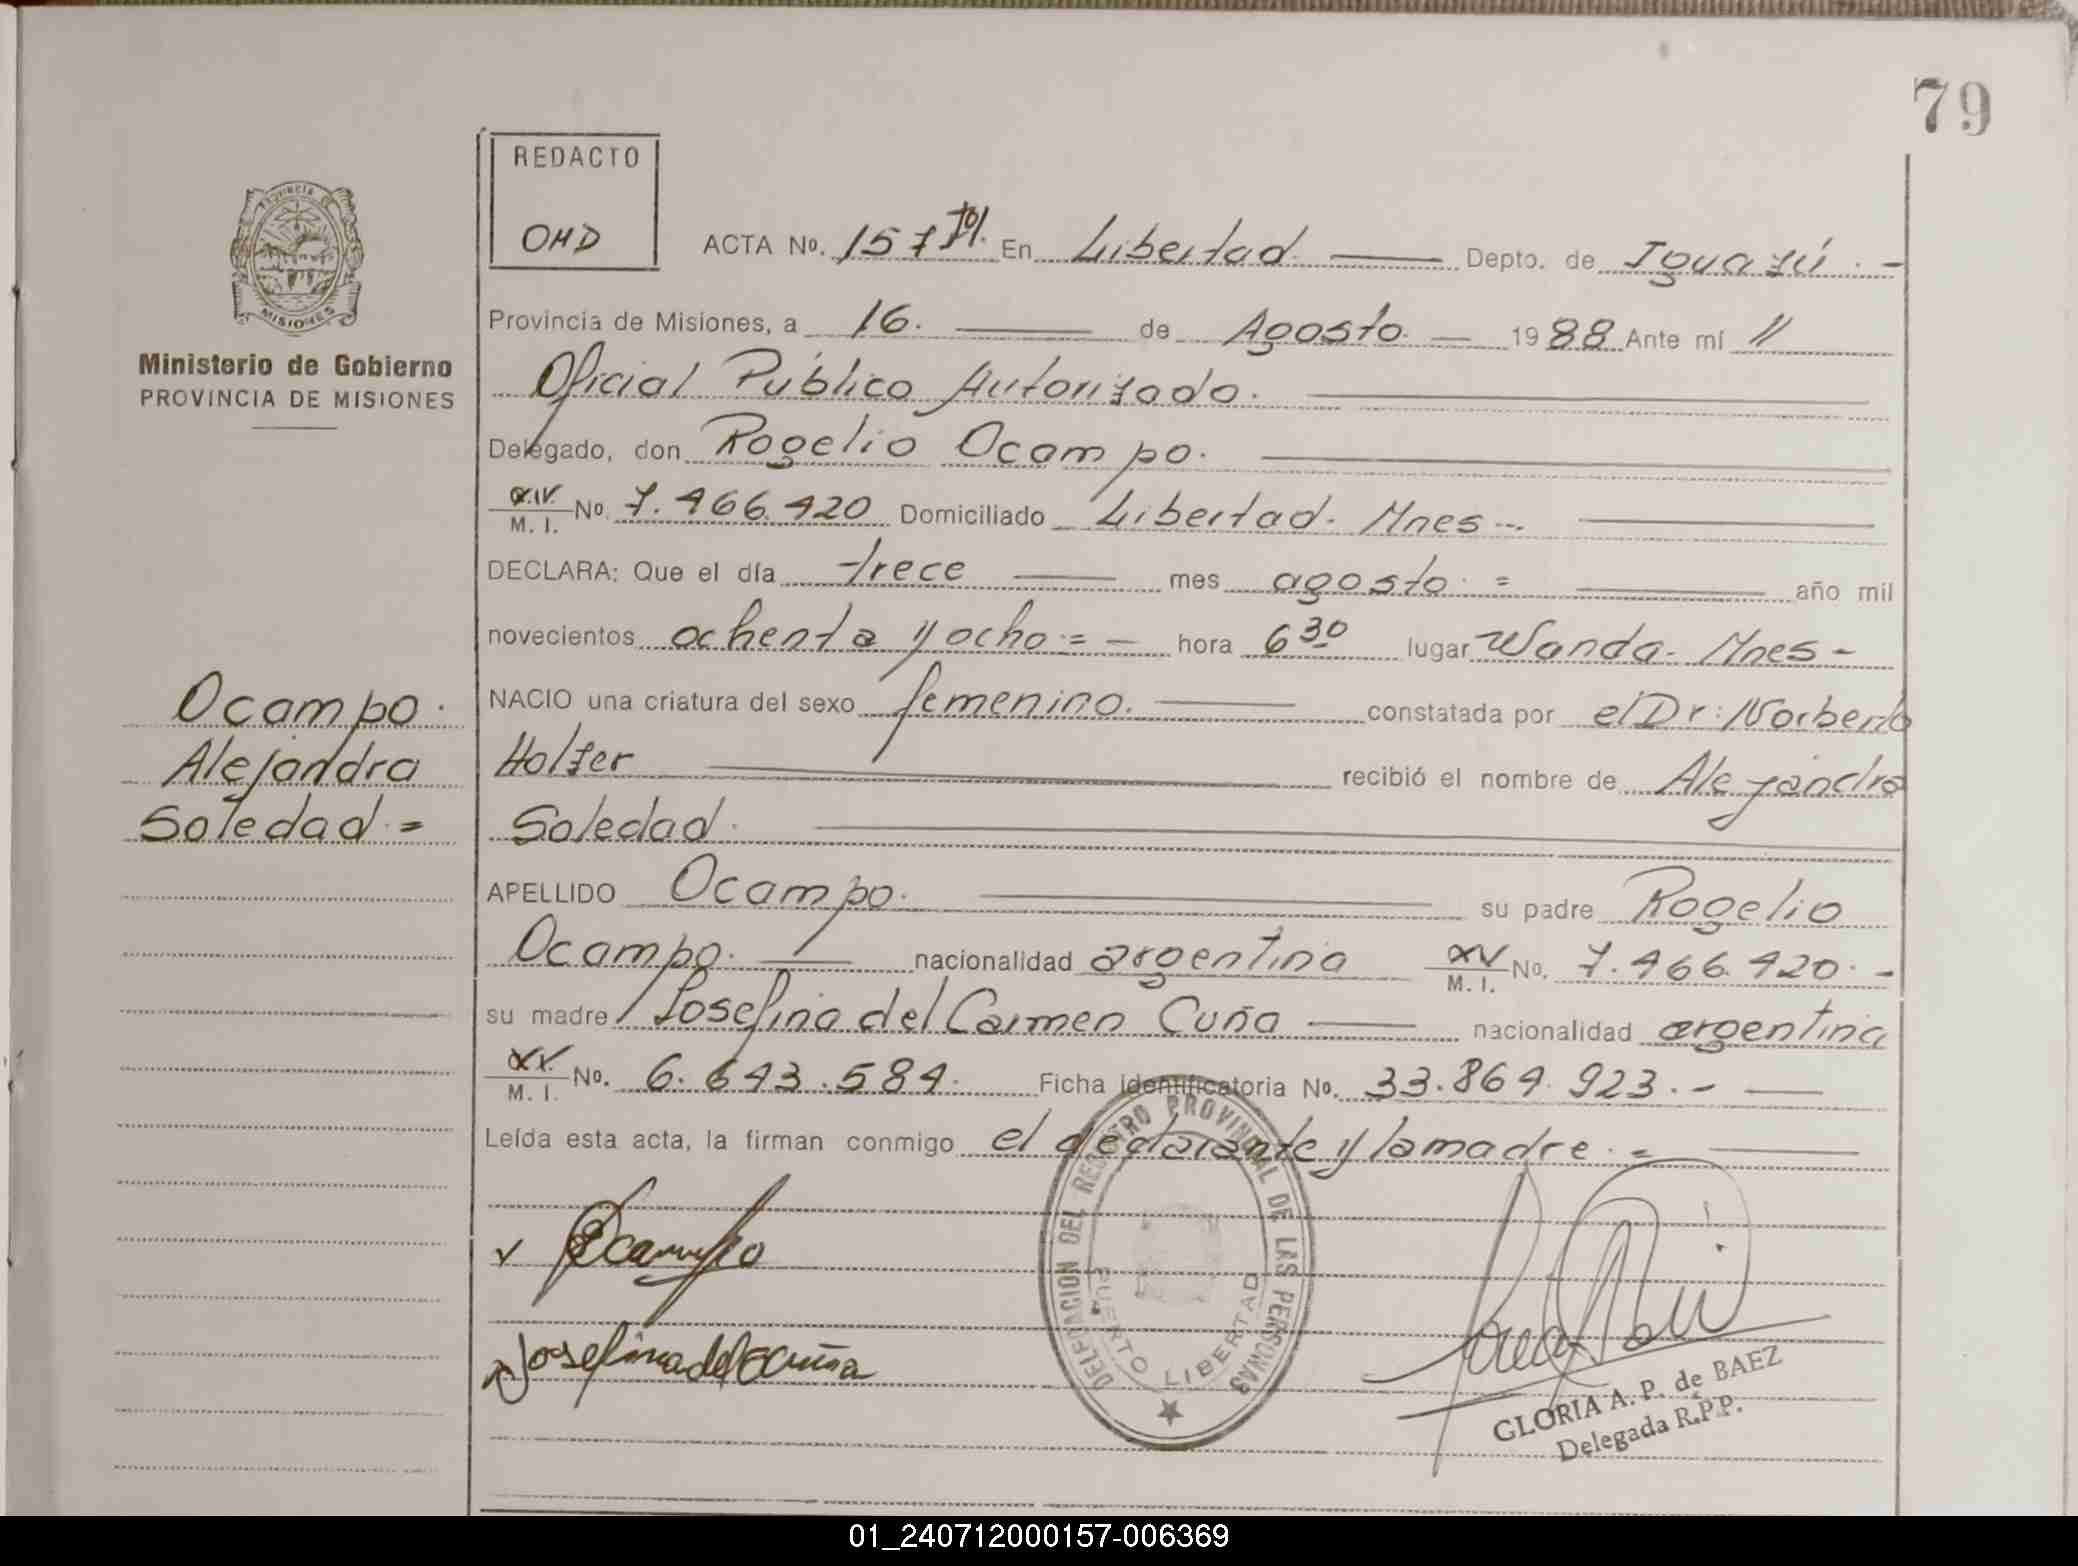 79
REDACTO
OHD
ACTA No. 157 Tol. En Libertad. Depto. de Iguazú. -
Provincia de Misiones, a 16. de Agosto. 1988 Ante mí //
Oficial Público Autorizado.
Delegado, don Rogelio Ocampo.
M. I. No. 7.466.420 Domiciliado Libertad. Mnes..
DECLARA: Que el día trece mes agosto. = año mil
novecientos ochenta y ocho = - hora 6 30 lugar Wanda. Mnes -
NACIO una criatura del sexo femenino. constatada por el Dr: Norberto
Holzer recibió el nombre de Alejandra
Soledad.
APELLIDO Ocampo. su padre Rogelio
Ocampo. nacionalidad argentina M. I. No. 7.466.420. -
su madre Josefina del Carmen Cuña nacionalidad argentina
M. I. No. 6.643.584. Ficha identificatoria No. 33.864.923. -
Leída esta acta, la firman conmigo el declarante y la madre. =
Provincia de
MISIONES
Ministerio de Gobierno
PROVINCIA DE MISIONES
Ocampo.
Alejandra
Soledad. =
Ocampo
Josefina del C Cuña
DELEGACION DEL REGISTRO PROVINCIAL DE LAS PERSONAS
PUERTO LIBERTAD
GLORIA A. P. de BAEZ
Delegada R.P.P.
01_240712000157-006369